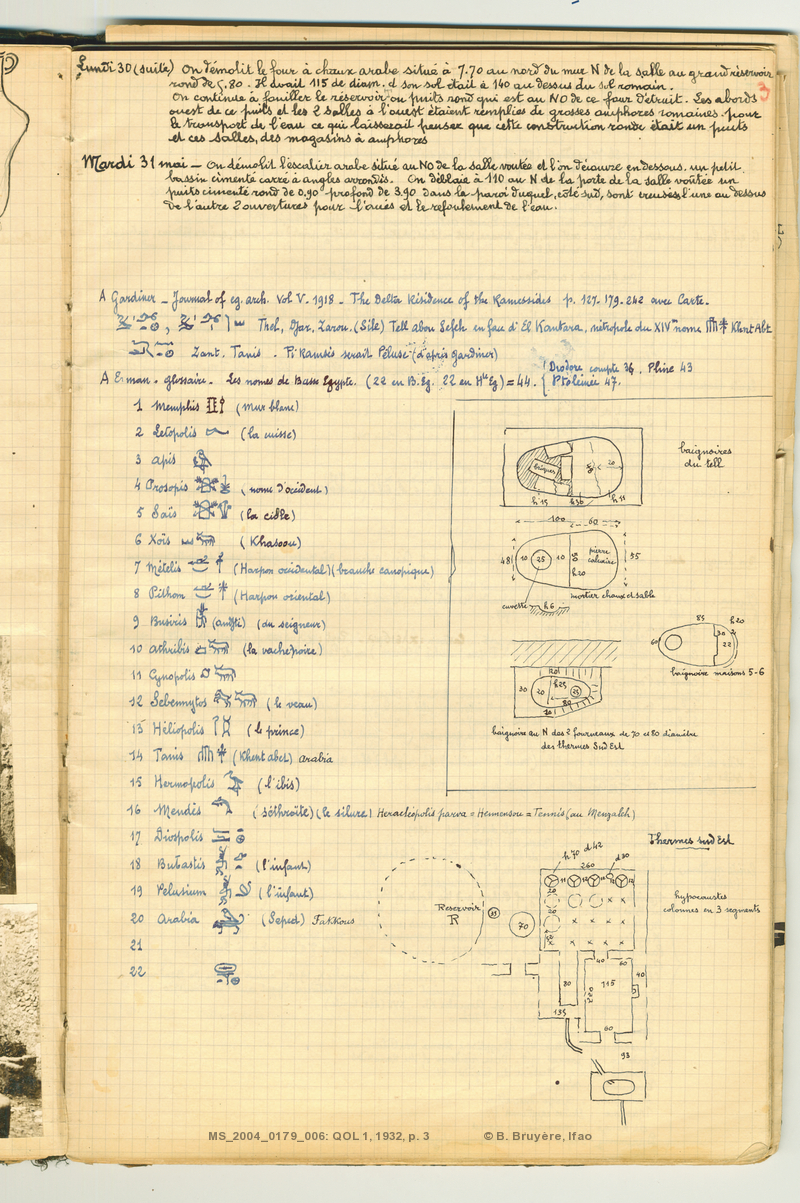 3
Lundi 30 (suite) On démolit le four à chaux arabe situé à 7.70 au nord du mur N de la salle au grand réservoir
rond de 5.80. Il avait 115 de diam. et son sol était à 140 au dessus du sol romain.
On continue à fouiller le réservoir ou puits rond qui est au NO de ce four détruit. Les abords
ouest de ce puits et les 2 salles à l'ouest étaient remplies de grosses amphores romaines pour
le transport de l'eau ce qui laisserait penser que cette construction ronde était un puits
et ces salles, des magasins à amphores
Mardi 31 mai – On démolit l'escalier arabe situé au NO de la salle voutée et l'on découvre en dessous, un petit
bassin cimenté carré à angles arrondis. On déblaie à 110 au N de la porte de la salle voûtée un
puits cimenté rond de 0,90 profond de 3.90 dans la paroi duquel, côté sud, sont creusées, l'une au dessus
de l'autre 2 ouvertures pour l'accès et le refoulement de l'eau.
A Gardiner – Journal of eg. arch. Vol V. 1918 – The Delta Résidence of the Ramessides p. 127. 179. 242 avec Carte.
Thel, Djar, Zarou. (Sile) Tell abou Sefeh en face d'El Kantara, métropole du XIVme nome Khent Abt
Zant. Tanis. Pi Ramsès serait Péluse (d'après Gardiner)
A Erman. glossaire. Les nomes de Basse Egypte. (22 en B. Eg. 22 en Hte Eg) = 44. { Diodore compte 36. Pline 43
Ptolémée 47.
1 Memphis (mur blanc)
2 Letopolis (la cuisse)
3 Apis
4 Prosopis (nome d'occident)
5 Saïs (la cible)
6 Xoïs (Khasoou)
7 Métélis (Harpon occidental) (branche canopique)
8 Pithom (Harpon oriental)
9 Busiris (du seigneur)
10 Athribis (la vache noire)
11 Cynopolis
12 Sebennytos (le veau)
13 Héliopolis (le prince)
14 Tanis (Khent abet) Arabia
15 Hermopolis (l'ibis)
16 Mendès (séthroïte) (le silure) Heracléopolis parva = Hennensou = Tennis (au Menzaleh)
17 Diospolis
18 Bubastis (l'infant)
19 Pelusium (l'infant)
20 Arabia (Seped) Fakkous
21
22
baignoires
du tell
briques
20
h 15
h 36
h 11
100
60
48
10
25
10
h 20
pierre
calcaire
55
cuvette
h 6
mortier chaux et sable
85
h 20
60
30
22
baignoire maisons 5-6
30
20
h 25
25
80
baignoire au N des 2 fourneaux de 70 et 80 diamètre
des thermes Sud Est
Thermes sud Est
h 70
d 42
d 30
260
20
20
hypocaustes
colonnes en 3 segments
Reservoir
R
70
40
60
80
115
40
135
60
93
MS_2004_0179_006: QOL 1, 1932, p. 3 © B. Bruyère, Ifao